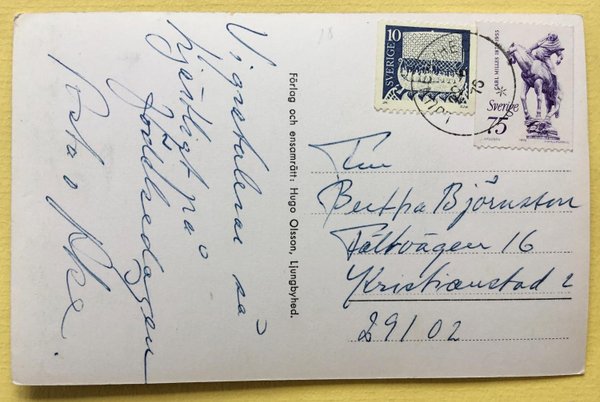 Vi gratulerar så
hjärtligt på
födelsedagen
Gösta o Elsa.
Förlag och ensamrätt: Hugo Olsson, Ljungbyhed.
SVERIGE 10
CARL MILLES 1875-1955
Sverige
75
76
Fru
Bertha Björnsson
Fältvägen 16
Kristianstad 2
291 02